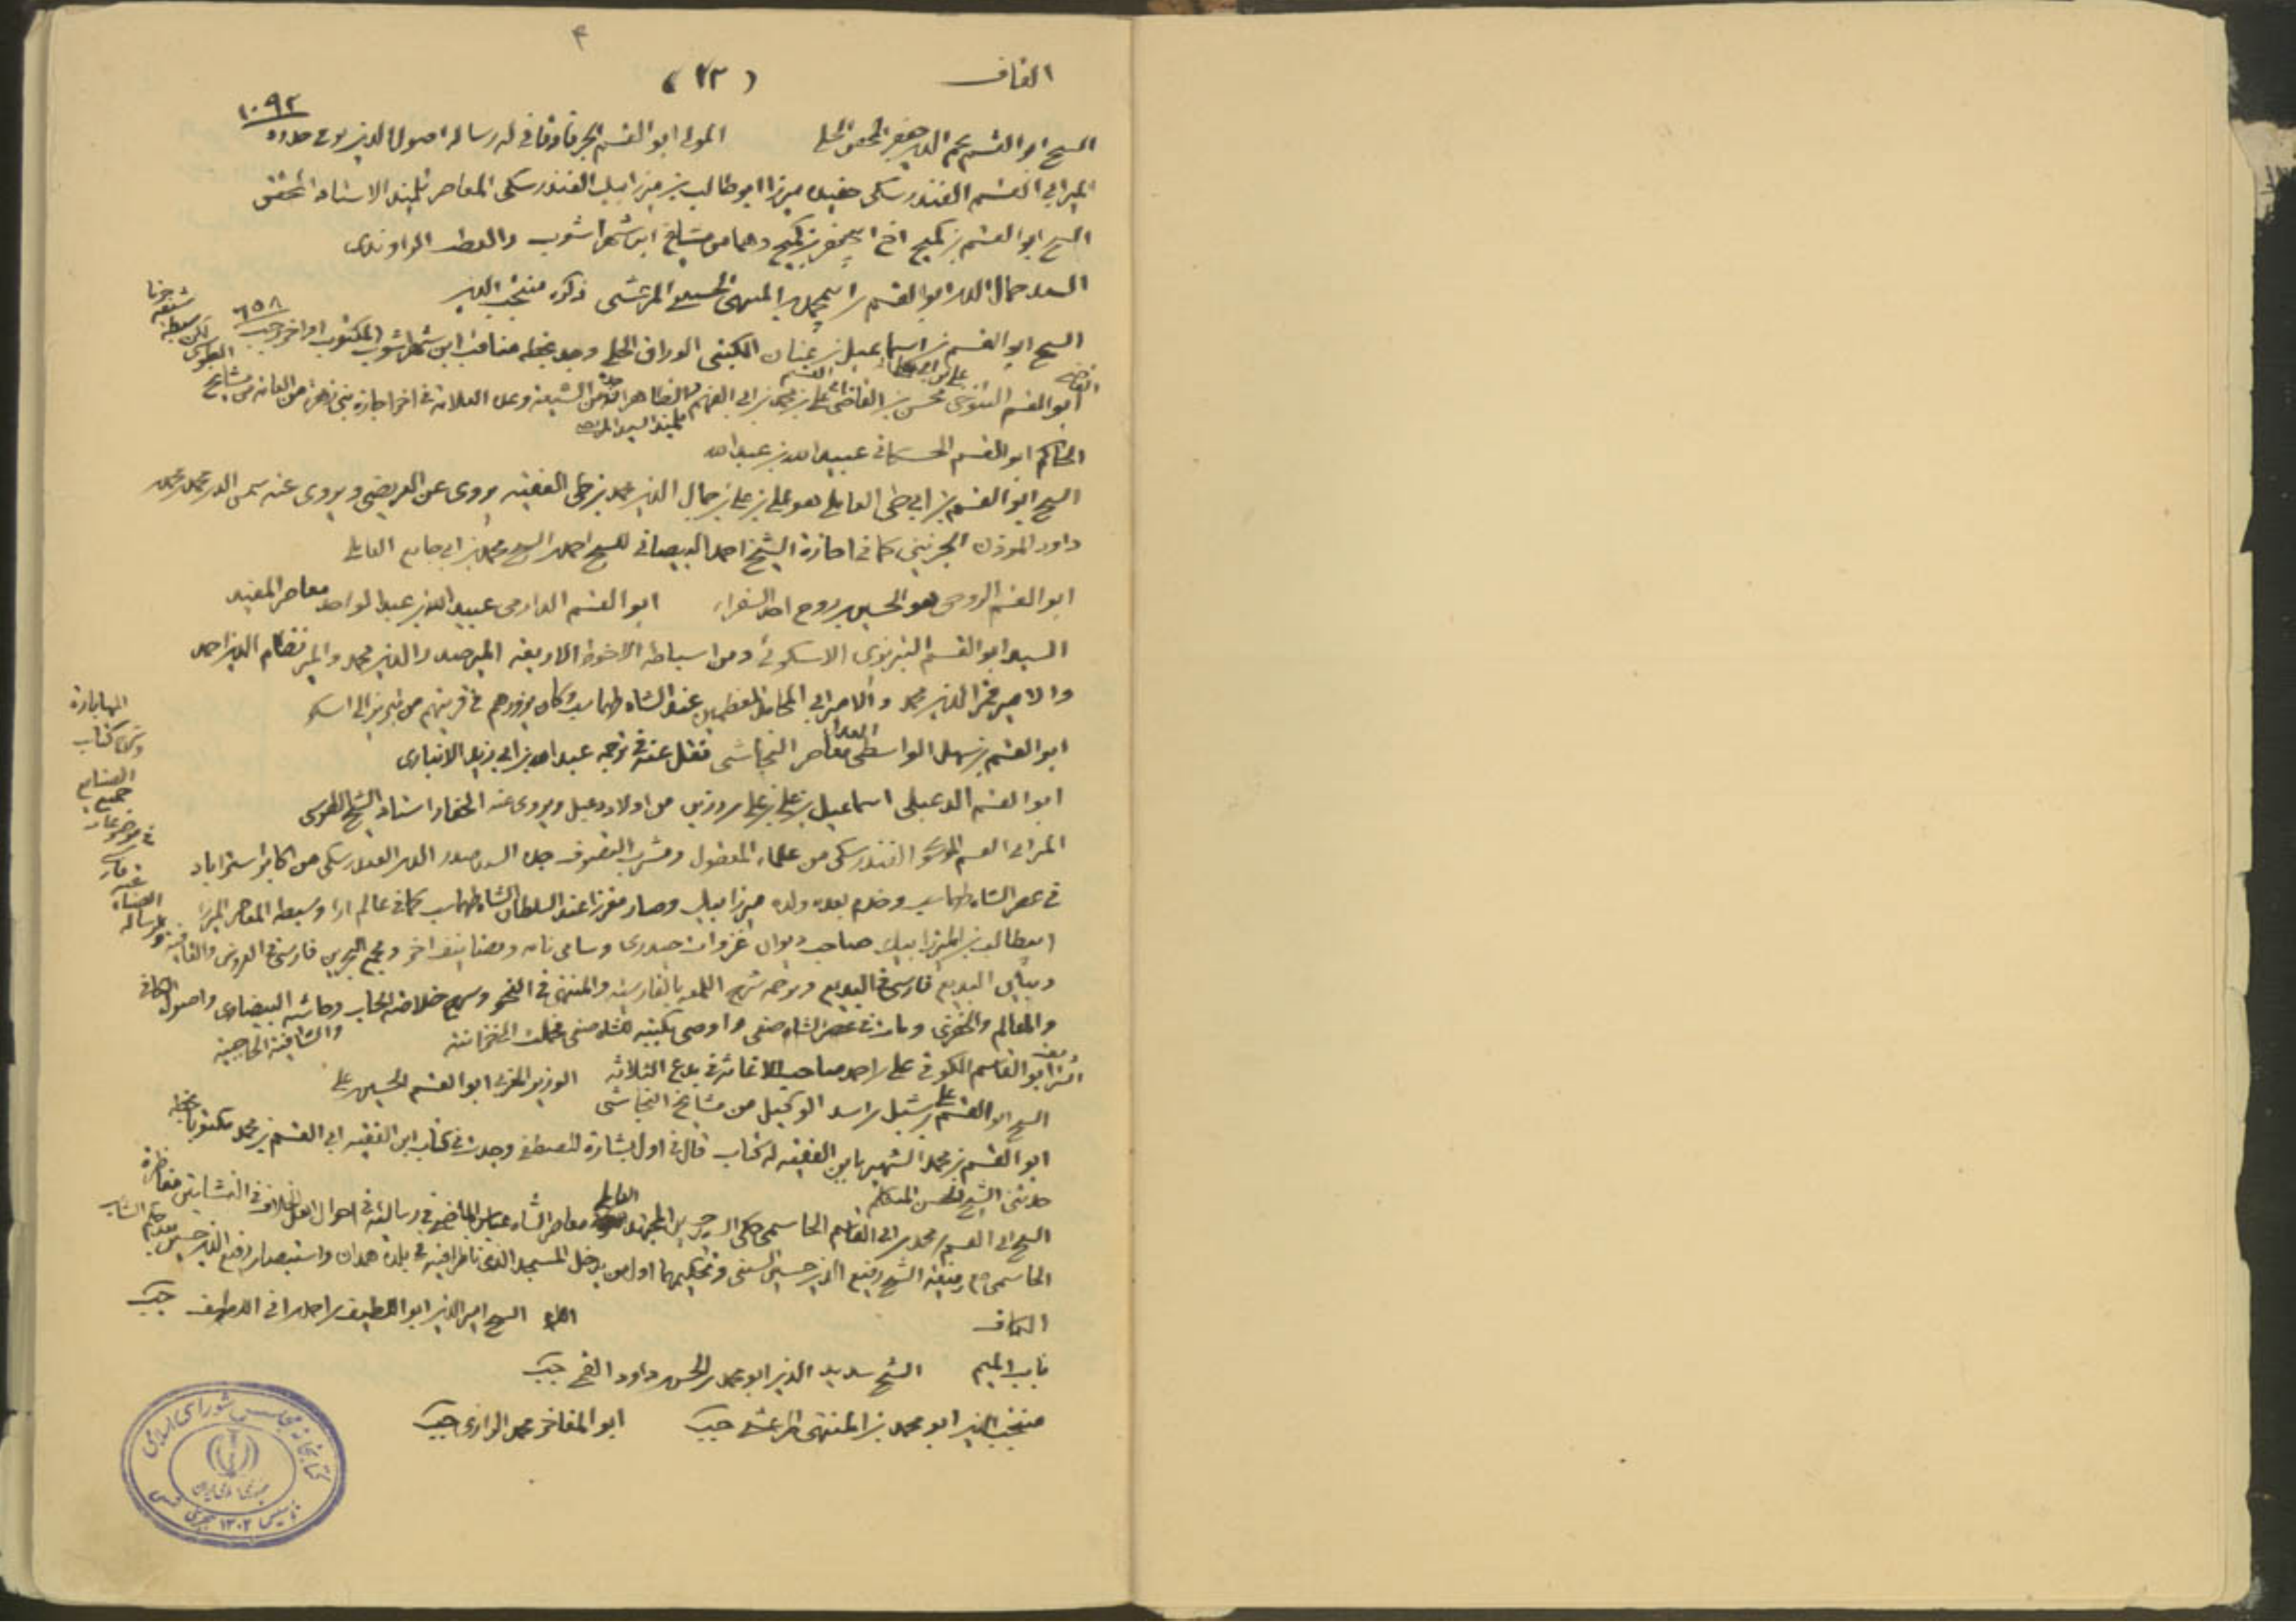 القاف
(٢٣)
١٠٩٢
الشيخ ابو القسم نجم الدين جعفر المحقق الحلي المولى ابو القسم الجرفادقاني له رسالة اصول الدين توفي حدود
المير ابي القسم الفندرسكي حفيده ميرزا ابو طالب بن ميرزا بيك الفندرسكي المعاصر تلميذ الاستاد المحقق
الشيخ ابو القسم بن كميح اخ ابي جعفر بن كميح وهما من مشايخ ابن شهراشوب والقطب الراوندي
السيد جمال الدين ابو القسم بن المنتهى الحسيني المرعشي ذكره منتجب الدين
الشيخ ابو القسم بن اسماعيل بن عنان الكتبي الوراق الحلي وجد بخطه مناقب ابن شهراشوب المكتوب اواخر رجب ٦٥٨
ابو القسم التنوخي محسن بن القاضي علي بن ابي الفهم من الشيعة وعده العلامة في اخر اجازة بني زهرة من العامة من مشايخ
الطوسي
تلميذ السيد المرتضى
الحاكم ابو القسم الحسكاني عبيد الله بن عبد الله
الشيخ ابو القسم بن ابي طي العاملي هو علي بن علي بن جمال الدين محمد بن طي الفقيه يروى عن العريضي ويروى عنه شمس الدين محمد بن محمد
داود المؤذن الجزيني كما في اجازة الشيخ احمد البيصاني للشيخ احمد بن الشيخ محمد بن ابي جامع العاملي
ابو القسم الروحي هو الحسين بن روح احد السفراء ابو القسم الدارمي عبيد الله بن عبد الواحد معاصر المفيد
السيد ابو القسم التبريزي الاسكوئي ومن اسباطه الاخوة الاربعة المير صدر الدين محمد والمير نظام الدين احمد
والامير قمر الدين محمد والامير ابي المحامد المعظمين عند الشاه طهماسب وكان يزورهم في قريتهم من تبريز الى اسكو
ابو القسم بن سهل الواسطي العدل معاصر النجاشي نقل عنه في ترجمة عبد الله بن ابي زيد الانباري
ابو القسم الدعبلي اسماعيل بن علي بن علي بن رزين من اولاد دعبل ويروى عنه الحفار استاد الشيخ الطوسي
المير ابي القسم الموسوي الفندرسكي من علماء المعقول ومشرب التصوف جده السيد صدر الدين الفندرسكي من اكابر استراباد
في عصر الشاه طهماسب وخدم بعده ولده ميرزا بيك وصار مقربا عند السلطان الشاه طهماسب كما في عالم ارا وسبطه المعاصر الميرزا
ابو طالب بن الميرزا بيك صاحب ديوان غزوات حيدري وسامي نامه وتصانيف اخر ومجمع البحرين فارسي في العروض والقافية ورسالة
وبيان البديع فارسي في البديع وترجمه شرح اللمعه بالفارسية والمنتهى في النحو وشرح خلاصة الحساب وحاشية البيضاوي واصول الكافي
والمعالم والخفري ومات في عصر الشاه صفي واوصى بكتبه للشاه صفي فحملت الى خزانته والشافية الحاجبية
ابو القاسم الكوفي علي بن احمد صاحب الاغاثة في بدع الثلاثة الوزير المغربي ابو القسم الحسين بن علي
الشيخ ابو القسم علي بن شبل بن اسد الوكيل من مشايخ النجاشي
ابو القسم بن محمد الشهير بابن الفقيه له كتاب قال في اول بشارة المصطفى وجدت في كتاب ابن الفقيه ابي القسم بن محمد مكتوبا بخطه
حدثني الشيخ الحسن المتكلم
الشيخ ابي القسم بن محمد بن ابي القاسم الحاسمي حكى السيد حسين المجتهد العاملي معاصر الشاه عباس الماضي في رسالته في احوال اهل الخلاف في النشاتين مناظرة
الحاسمي مع رفيقه الشيخ رفيع الدين حسين السني وتحكيمهما اول من يدخل المسجد الذي تناظرا فيه في بلدة همدان واستبصار رفيع الدين حسين بعد حكم الشاب
الكاف اللام الشيخ امير الدين ابو اللطيف بن احمد جب
باب الميم الشيخ سديد الدين ابو محمد بن الحسن بن داود القمي جب
منتجب الدين ابو محمد بن المنتهى المرعشي جب ابو المفاخر محمد الرازي جب
المهابارة
وكذا كتاب
الصنايع
جميع
كتابخانه مجلس شورای اسلامی
جمهوری اسلامی ایران
تأسیس ۱۳۰۲ هجری شمسی